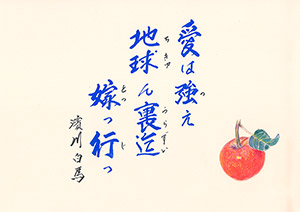 愛は強え
地球ん裏迄
嫁っ行っ
濱川白馬